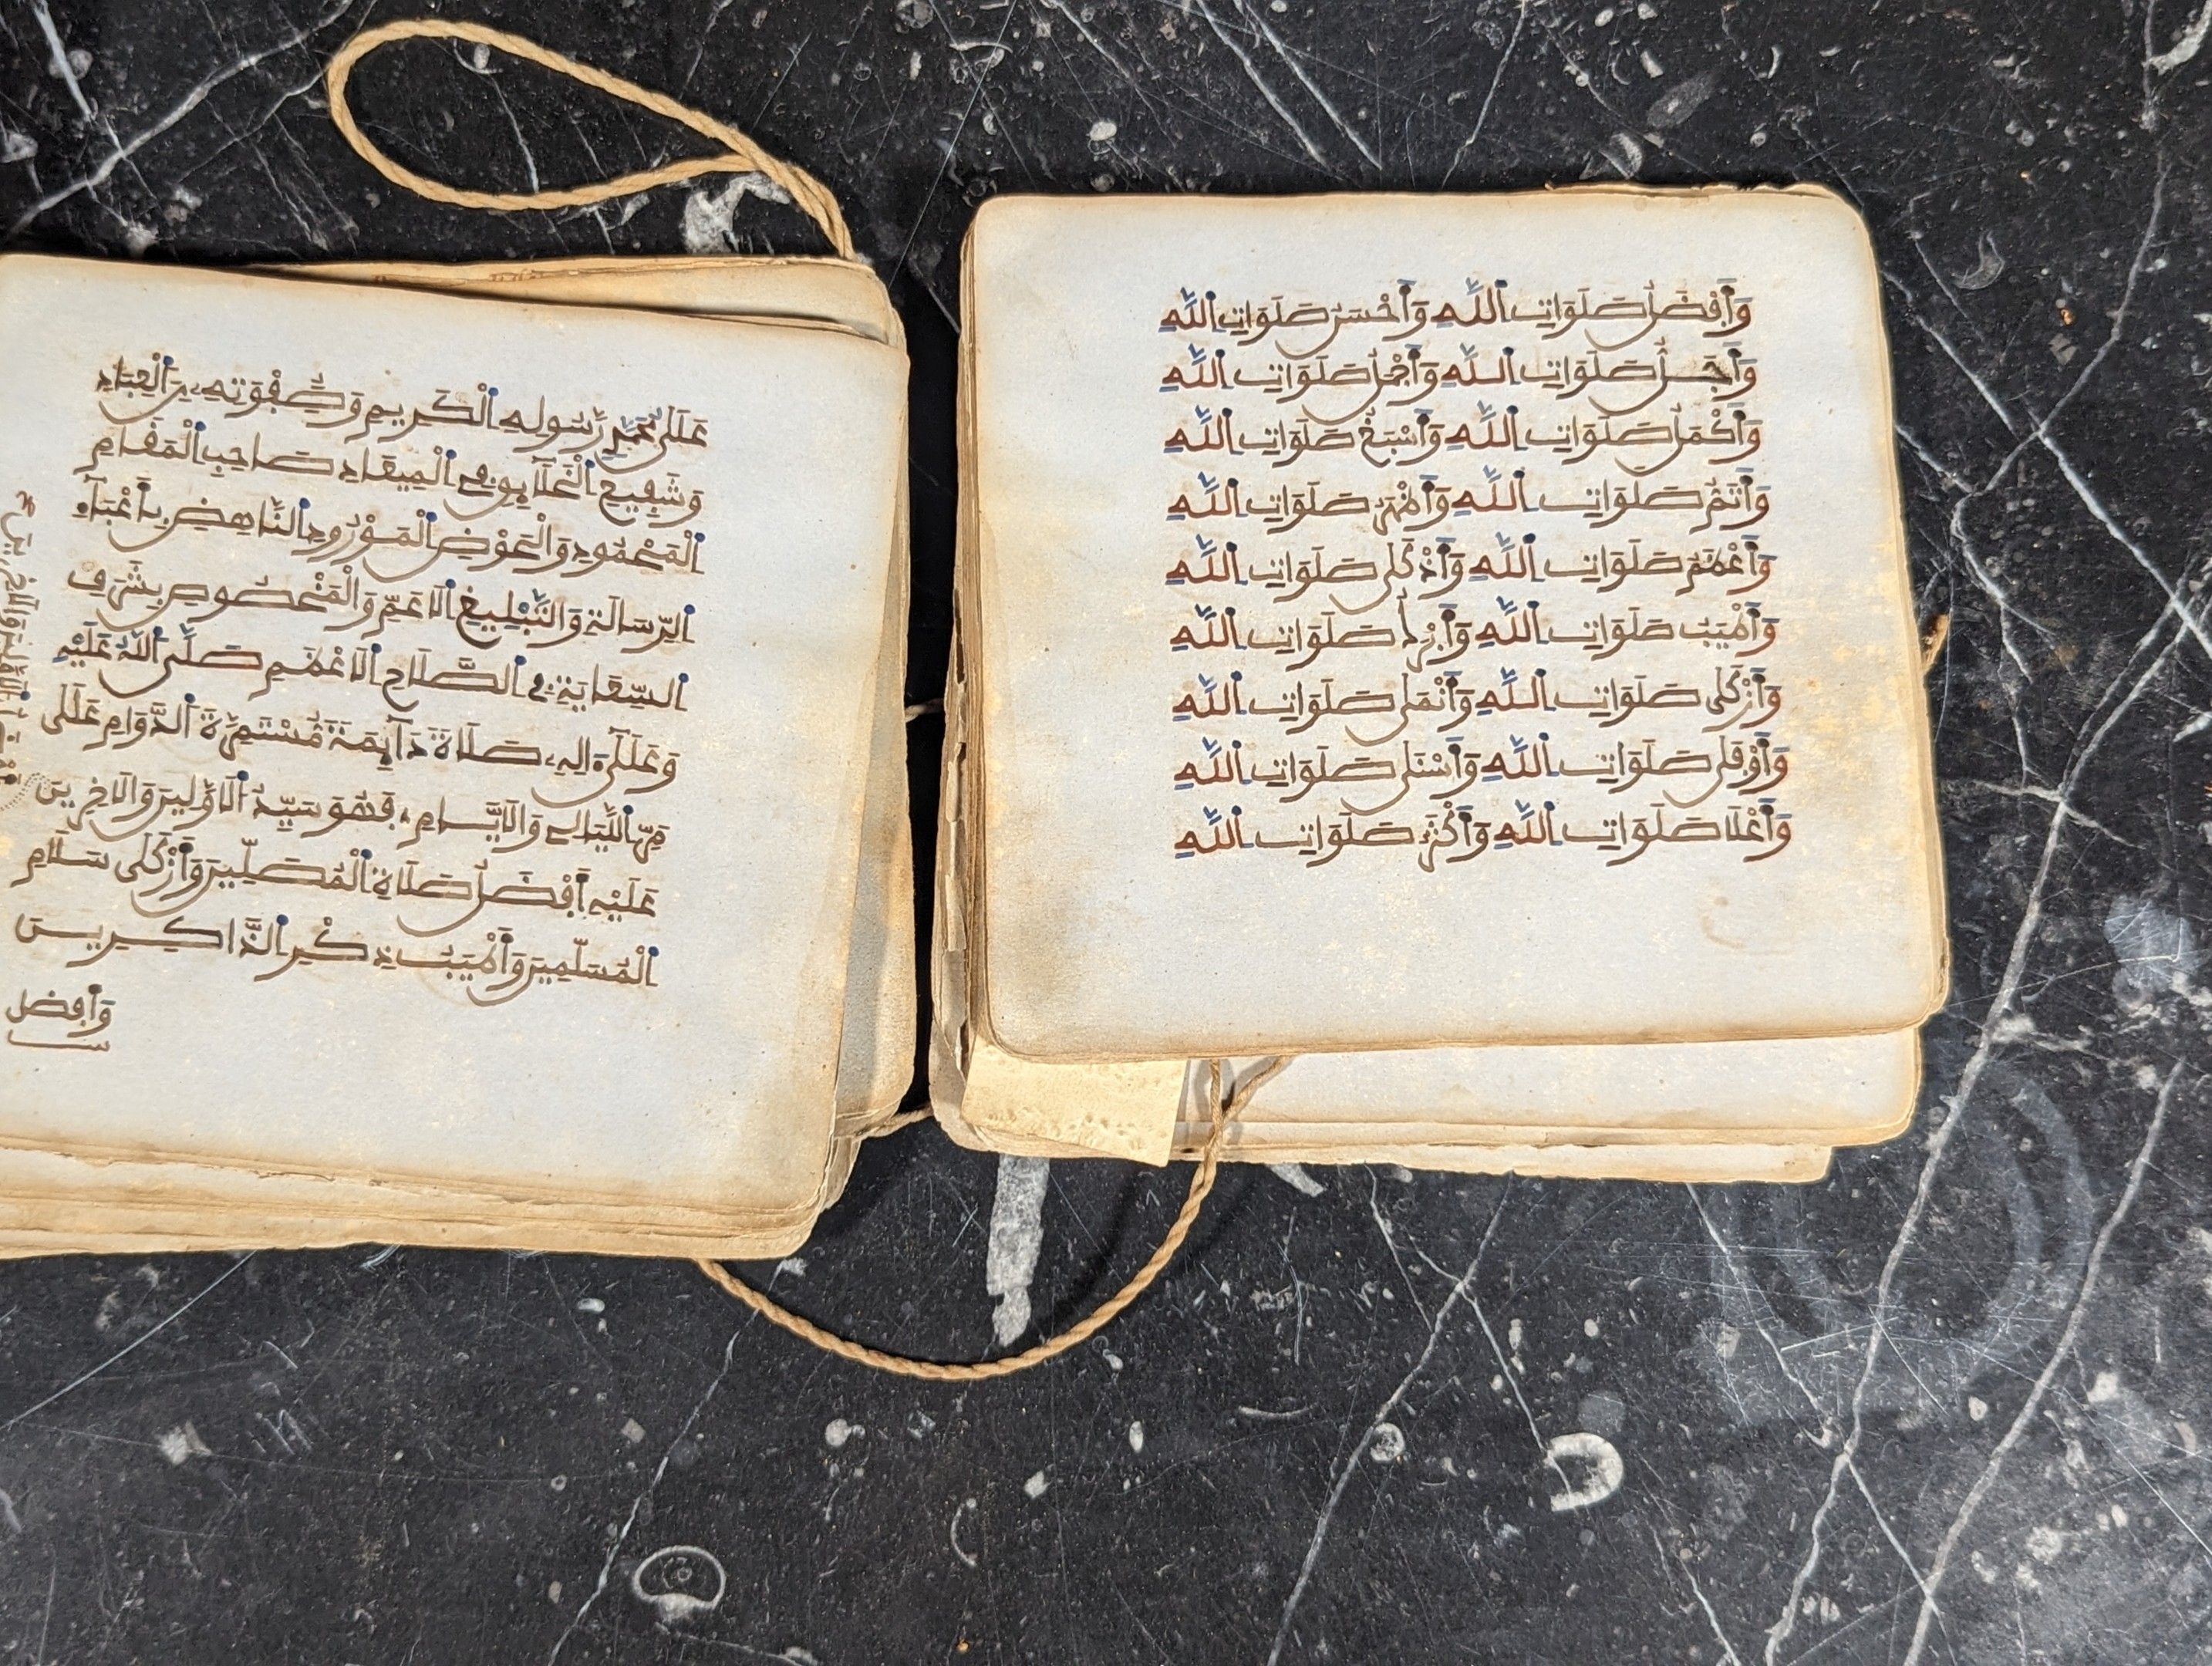 عَلَى مُحَمَّدٍ رَسُولِهِ الْكَرِيمِ وَصَفْوَتِهِ مِنَ الْعِبَادِ
وَشَفِيعِ الْخَلَايِقِ فِي الْمِيعَادِ صَاحِبِ الْمَقَامِ
الْمَحْمُودِ وَالْحَوْضِ الْمَوْرُودِ النَّاهِضِ بِأَعْبَآءِ
الرِّسَالَةِ وَالتَّبْلِيغِ الَاعَمِّ وَالْمَخْصُوصِ بِشَرَفِ
السِّعَايَةِ فِي الصَّلَاحِ الَاعْظَمِ صَلَّى اللَّهُ عَلَيْهِ
وَعَلَى ءَالِهِ صَلَاةً دَآيِمَةً مُسْتَمِرَّةَ الدَّوَامِ عَلَى
مَرِّ اللَّيَالِي وَالَايَّامِ فَهُوَ سَيِّدُ الَاوَّلِينَ وَالَاخِرِينَ
عَلَيْهِ أَفْضَلُ صَلَاةِ الْمُصَلِّينَ وَأَزْكَى سَلَامِ
الْمُسَلِّمِينَ وَأَطْيَبُ ذِكْرِ الذَّاكِرِينَ
وَأَفْضَل
وَأَفْضَلُ صَلَوَاتِ اللَّهِ وَأَحْسَنُ صَلَوَاتِ اللَّهِ
وَأَجَلُّ صَلَوَاتِ اللَّهِ وَأَجْمَلُ صَلَوَاتِ اللَّهِ
وَأَكْمَلُ صَلَوَاتِ اللَّهِ وَأَسْبَغُ صَلَوَاتِ اللَّهِ
وَأَتَمُّ صَلَوَاتِ اللَّهِ وَأَظْهَرُ صَلَوَاتِ اللَّهِ
وَأَعْظَمُ صَلَوَاتِ اللَّهِ وَأَذْكَى صَلَوَاتِ اللَّهِ
وَأَطْيَبُ صَلَوَاتِ اللَّهِ وَأَبْرَكُ صَلَوَاتِ اللَّهِ
وَأَزْكَى صَلَوَاتِ اللَّهِ وَأَنْمَى صَلَوَاتِ اللَّهِ
وَأَوْفَى صَلَوَاتِ اللَّهِ وَأَسْنَى صَلَوَاتِ اللَّهِ
وَأَعْلَا صَلَوَاتِ اللَّهِ وَأَكْثَرُ صَلَوَاتِ اللَّهِ